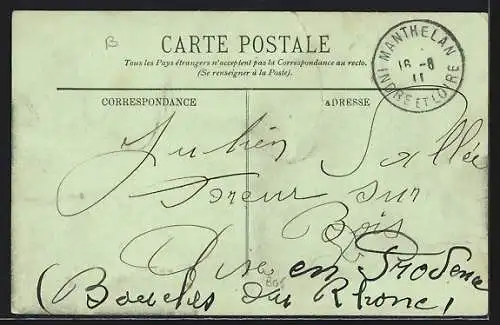 B
CARTE POSTALE
Tous les Pays étrangers n'acceptent pas la Correspondance au recto.
(Se renseigner à la Poste)
MANTHELAN
16 - 8
11
INDRE ET LOIRE
CORRESPONDANCE
ADRESSE
Julien Sallée
sur
Bois
Aise en Provence
(Bouches du Rhone)